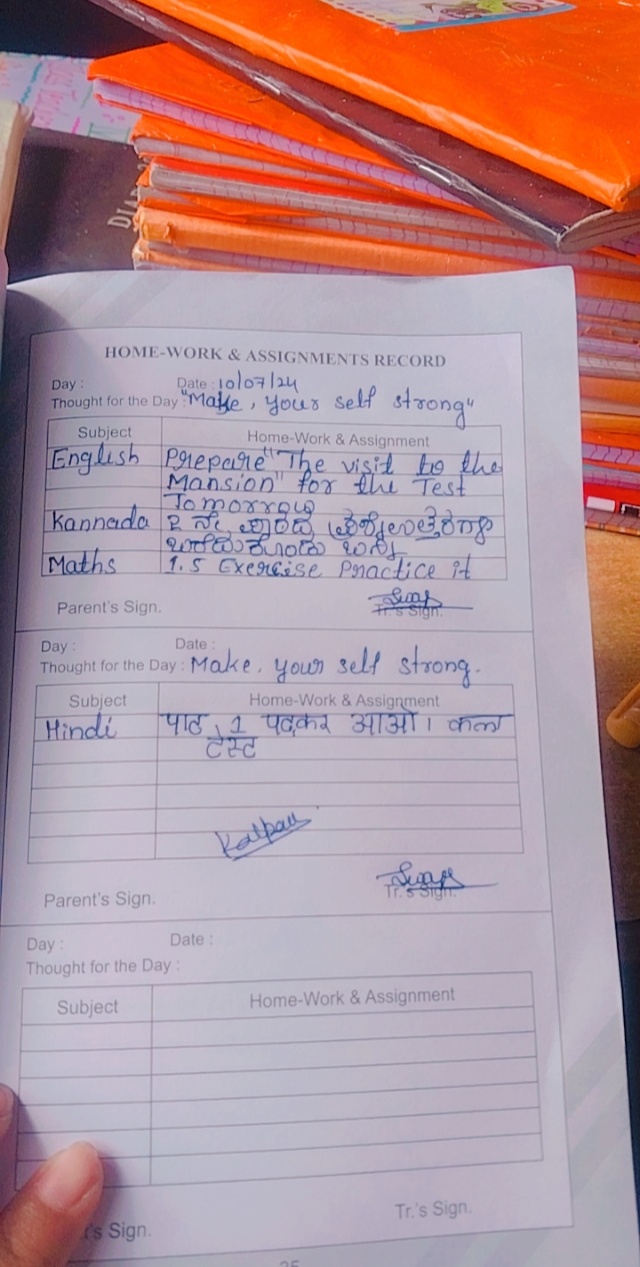 HOME-WORK & ASSIGNMENTS RECORD
Day : Date : 10/07/24
Thought for the Day : "Make, your self strong"
Subject Home-Work & Assignment
English Prepare "The visit to the
Mansion" for the Test
Tomorrow
Kannada 2 ನೇ ಪಾಠದ
ಬರೆದುಕೊಂಡು ಬನ್ನಿ
Maths 1.5 Exercise Practice it
Parent's Sign. Tr.'s Sign.
Day : Date :
Thought for the Day : Make, your self strong.
Subject Home-Work & Assignment
Hindi पाठ 1 पढ़कर आओ। कल
टेस्ट
Kalpau
Parent's Sign. Tr.'s Sign.
Day : Date :
Thought for the Day :
Subject Home-Work & Assignment
's Sign. Tr.'s Sign.